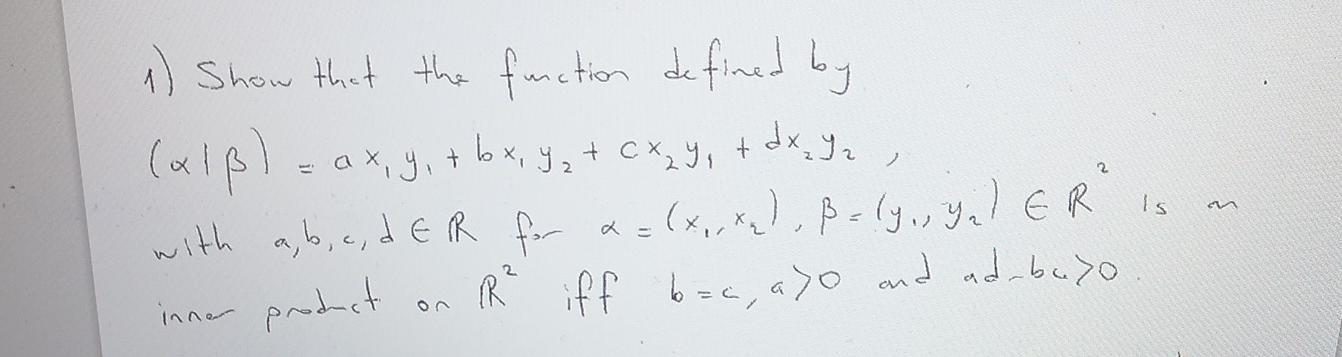 1) Show that the function defined by
(α|β) = ax₁y₁ + bx₁y₂ + cx₂y₁ + dx₂y₂ ,
with a,b,c,d ∈ ℝ for α = (x₁, x₂), β = (y₁, y₂) ∈ ℝ² is an
inner product on ℝ² iff b=c, a>0 and ad-bc>0.